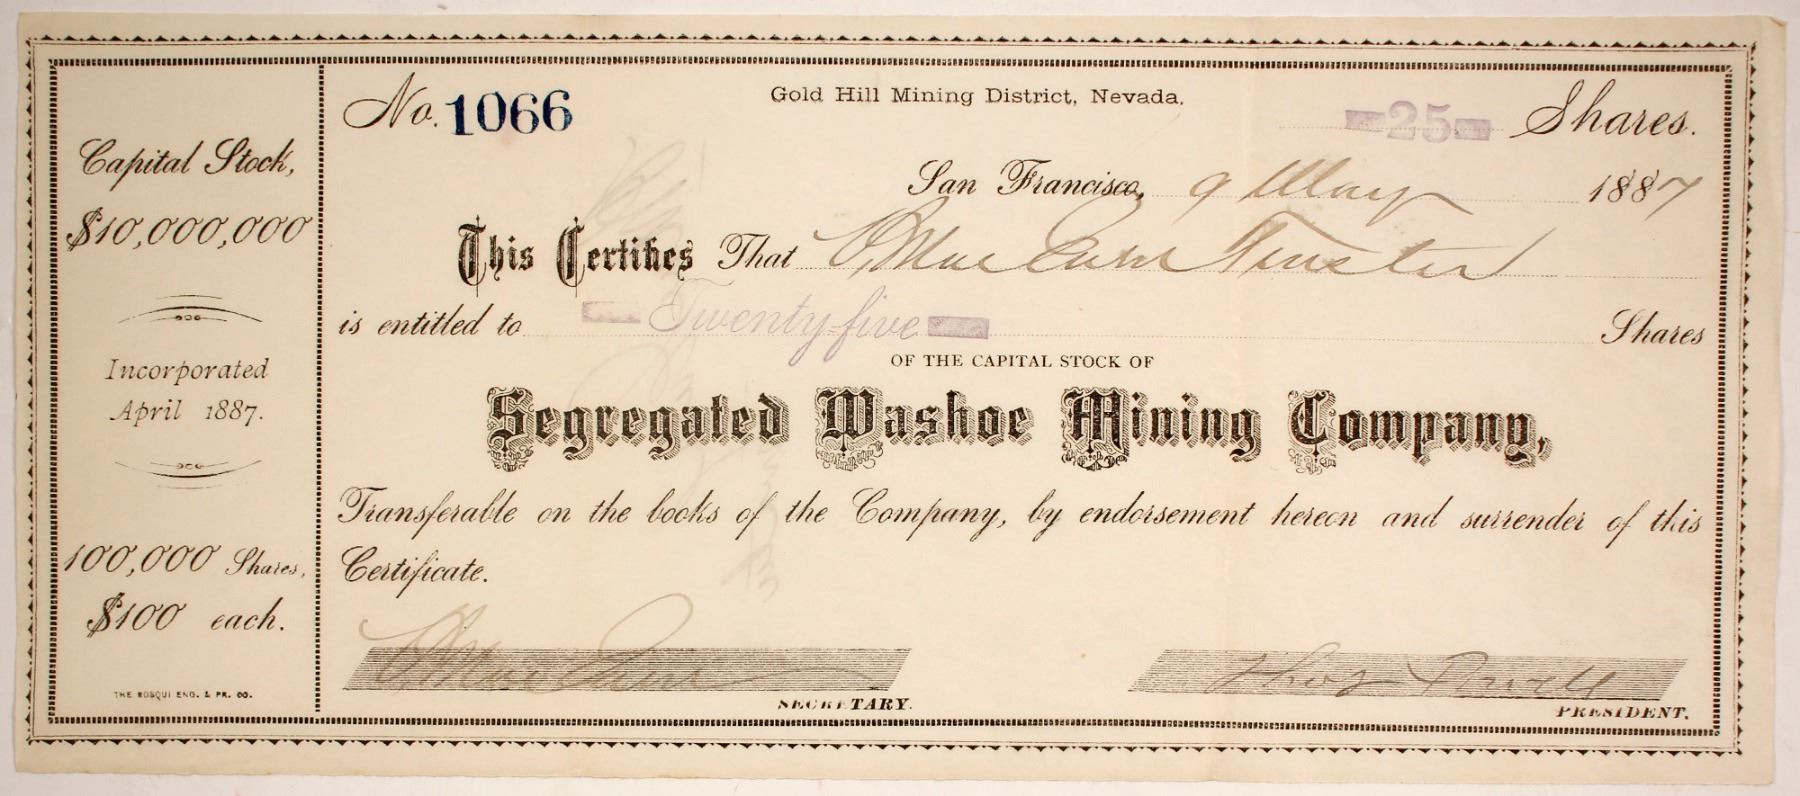 Capital Stock,
$10,000,000
Incorporated
April 1887.
100,000 Shares,
$100 each.
THE BOSQUI ENG. & PR. CO.
No. 1066
Gold Hill Mining District, Nevada.
25 Shares.
San Francisco, 9 May 1887
This Certifies That Trustee
is entitled to Twenty-five Shares
OF THE CAPITAL STOCK OF
Segregated Washoe Mining Company,
Transferable on the books of the Company, by endorsement hereon and surrender of this
Certificate.
SECRETARY.
PRESIDENT.